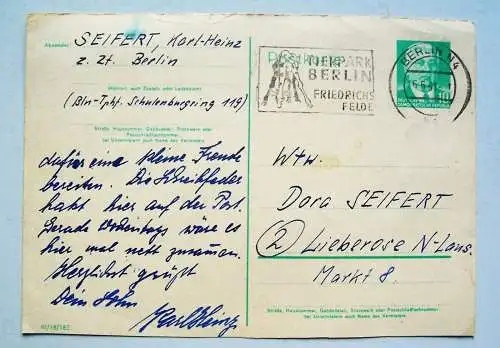 Absender: SEIFERT, Karl-Heinz
z. Zt. Berlin
Wohnort, auch Zustell- oder Leitpostamt
(Bln-Tphf. Schulenburgring 119)
Straße, Hausnummer, Gebäudeteil, Stockwerk oder
Postschließfachnummer
bei Untermietern auch Name des Vermieters
dafür eine kleine Freude
bereiten. Die Schreibfeder
hakt hier auf der Post.
Gerade wäre es
hier mal nett zusammen.
Herzlichst grüßt
Dein Sohn
Karl Heinz
Postkarte
TIERPARK
BERLIN
FRIEDRICHS
FELDE
BERLIN
10
Wtw.
Dora SEIFERT
2 Lieberose N-Laus.
Markt 8.
Straße, Hausnummer, Gebäudeteil, Stockwerk oder Postschließfachnummer
bei Untermietern auch Name des Vermieters